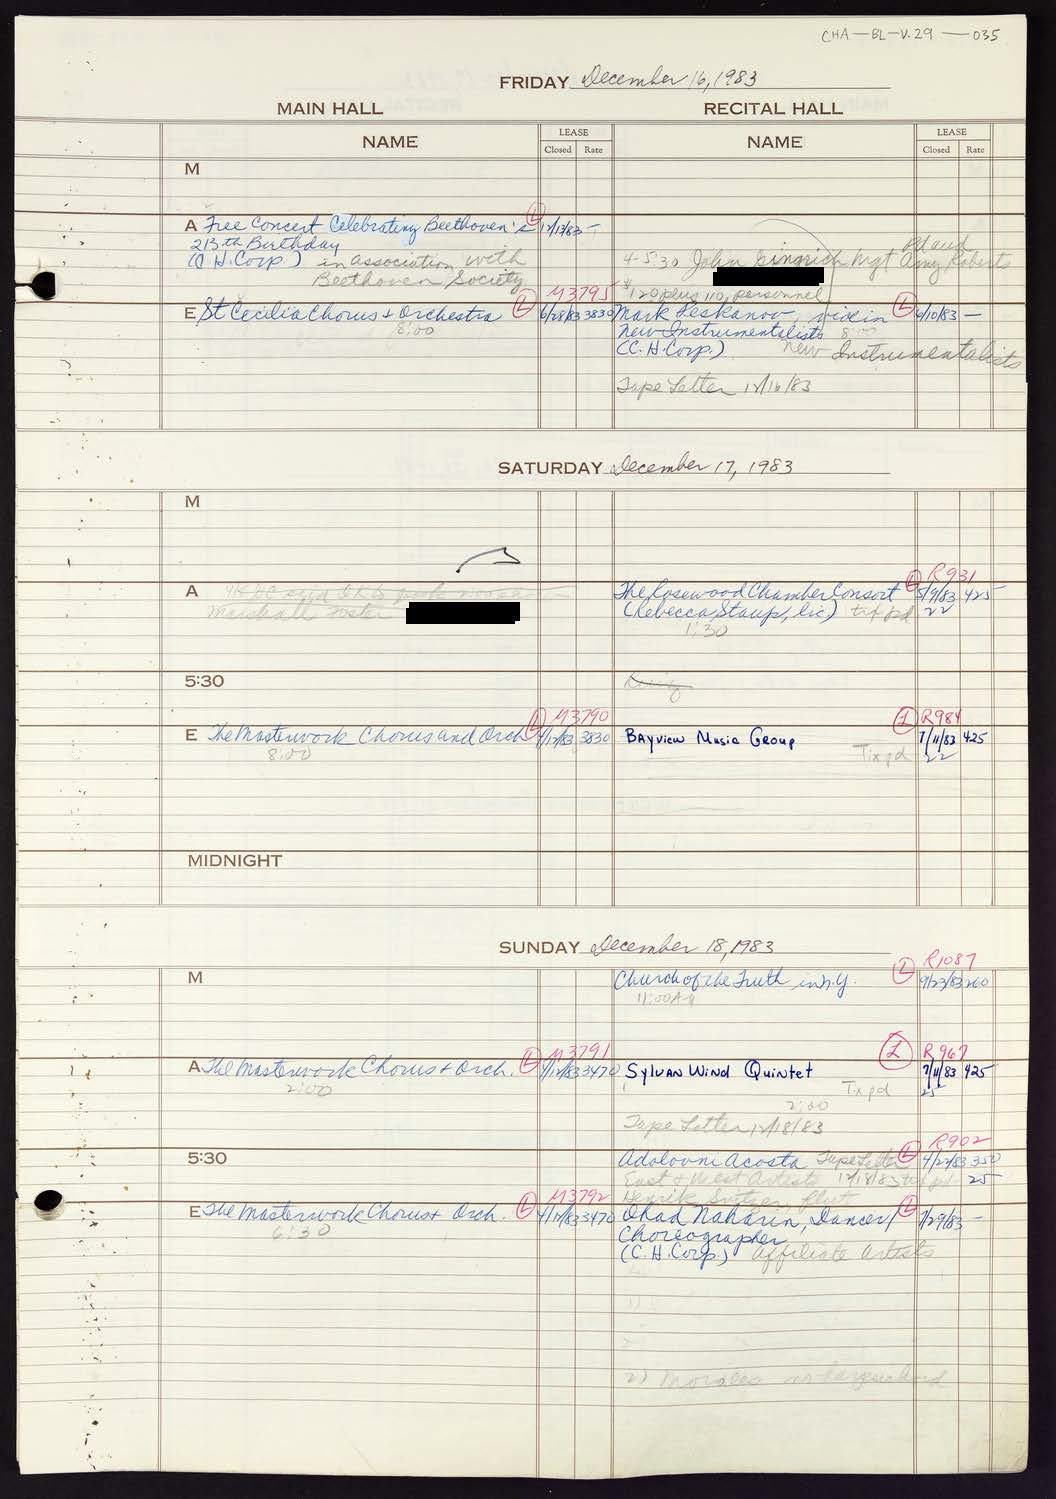 CHA-BL-V.29-035
FRIDAY December 16, 1983
MAIN HALL RECITAL HALL
NAME LEASE NAME LEASE
Closed Rate Closed Rate
M
A Free Concert Celebrating Beethoven's L 12/13/83 -
213th Birthday
(C.H. Corp.) in association with
Beethoven Society
4-5:30 John Gingrich Mgt Amy Roberts
$120 plus 110, personnel
M3795
E St Cecilia Chorus & Orchestra L 6/28/83 3830
8:00
Mark Peskanov, violin L 6/10/83 -
New Instrumentalists 8:00
(C.H. Corp.) New Instrumentalists
Tape Letter 12/16/83
SATURDAY December 17, 1983
M
A
Marshall
R931
The Rosewood Chamber Consort L 5/9/83 425
(Rebecca Staup, lic) tix pd 22
1:30
5:30
M3790
E The Masterwork Chorus and Orch L 4/12/83 3830
8:00
R984
Bayview Music Group L 7/11/83 425
Tix pd 22
MIDNIGHT
SUNDAY December 18, 1983
R1087
M Church of the Truth in N.Y. L 9/23/83 260
11:00AM
M3791
A The Masterwork Chorus & Orch. L 4/12/83 3470
2:00
R967
Sylvan Wind Quintet L 7/11/83 425
Tix pd 25
2:00
Tape Letter 12/18/83
R902
5:30 Adolovni Acosta Tape Letter L 4/22/83 350
East & West Artists 12/18/83 tix pd 25
Henrik Svitzer, flute
M3792
E The Masterwork Chorus & Orch. L 4/12/83 3470
6:30
Ohad Naharin, Dancer/ L 7/29/83 -
Choreographer
(C.H. Corp.) Affiliate Artists
Morales no harpsichord